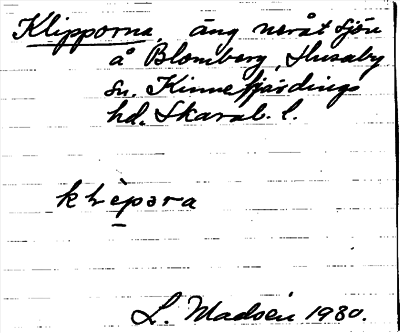 Klipporna, äng neråt sjön
å Blomberg, Husaby
sn. Kinnefjärdings
hd. Skarab. l.
L. Madsén 1930.